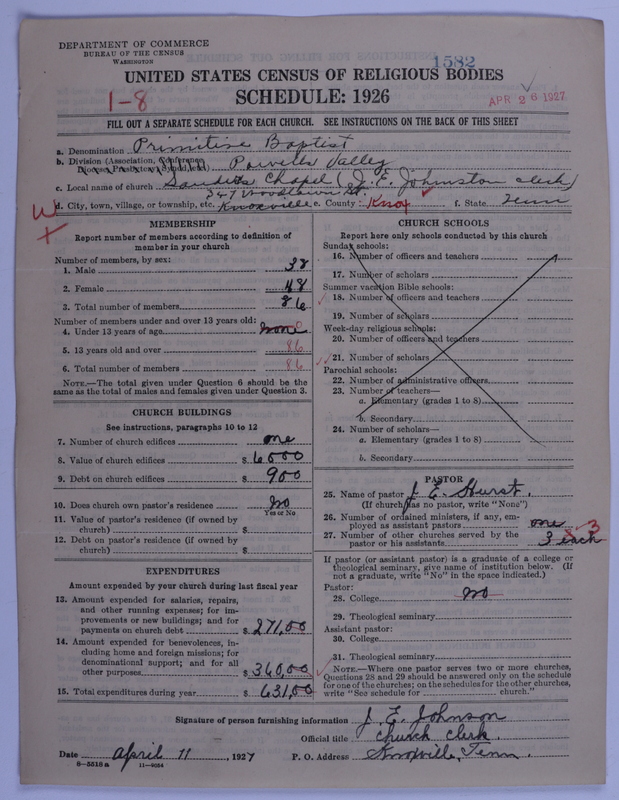 DEPARTMENT OF COMMERCE
BUREAU OF THE CENSUS
WASHINGTON
1582
UNITED STATES CENSUS OF RELIGIOUS BODIES
SCHEDULE: 1926
1-8
APR 26 1927
FILL OUT A SEPARATE SCHEDULE FOR EACH CHURCH. SEE INSTRUCTIONS ON THE BACK OF THIS SHEET
a. Denomination Primitive Baptist
b. Division (Association, Conference, Powells Valley
c. Local name of church Chapel (J. E. Johnston clerk)
347 Woodlawn St.
d. City, town, village, or township, etc. Knoxville e. County: Knox f. State. Tenn
MEMBERSHIP
Report number of members according to definition of
member in your church
Number of members, by sex:
1. Male 38
2. Female 48
3. Total number of members 86
Number of members under and over 13 years old:
4. Under 13 years of age none 0
5. 13 years old and over 86
6. Total number of members 86
NOTE.—The total given under Question 6 should be the
same as the total of males and females given under Question 3.
CHURCH BUILDINGS
See instructions, paragraphs 10 to 12
7. Number of church edifices one
8. Value of church edifices $ 6000
9. Debt on church edifices $ 900
10. Does church own pastor's residence no
Yes or No
11. Value of pastor's residence (if owned by
church) $
12. Debt on pastor's residence (if owned by
church) $
EXPENDITURES
Amount expended by your church during last fiscal year
13. Amount expended for salaries, repairs,
and other running expenses; for im-
provements or new buildings; and for
payments on church debt $ 271,00
14. Amount expended for benevolences, in-
cluding home and foreign missions; for
denominational support; and for all
other purposes $ 360,00
15. Total expenditures during year $ 631,00
CHURCH SCHOOLS
Report here only schools conducted by this church
Sunday schools:
16. Number of officers and teachers
17. Number of scholars
Summer vacation Bible schools:
18. Number of officers and teachers
19. Number of scholars
Week-day religious schools:
20. Number of officers and teachers
21. Number of scholars
Parochial schools:
22. Number of administrative officers
23. Number of teachers—
a. Elementary (grades 1 to 8)
b. Secondary
24. Number of scholars—
a. Elementary (grades 1 to 8)
b. Secondary
PASTOR
25. Name of pastor J. E. Hurst.
(If church has no pastor, write "None")
26. Number of ordained ministers, if any, em-
ployed as assistant pastors one
27. Number of other churches served by the
pastor or his assistants 3 each 3
If pastor (or assistant pastor) is a graduate of a college or
theological seminary, give name of institution below. (If
not a graduate, write "No" in the space indicated.)
Pastor:
28. College no
29. Theological seminary
Assistant pastor:
30. College
31. Theological seminary
NOTE.—Where one pastor serves two or more churches,
Questions 28 and 29 should be answered only on the schedule
for one of the churches; on the schedules for the other churches,
write "See schedule for church."
Signature of person furnishing information J. E. Johnson
Official title church clerk.
Date April 11, 1927 P. O. Address Knoxville, Tenn.
8-5518 a 11-9054